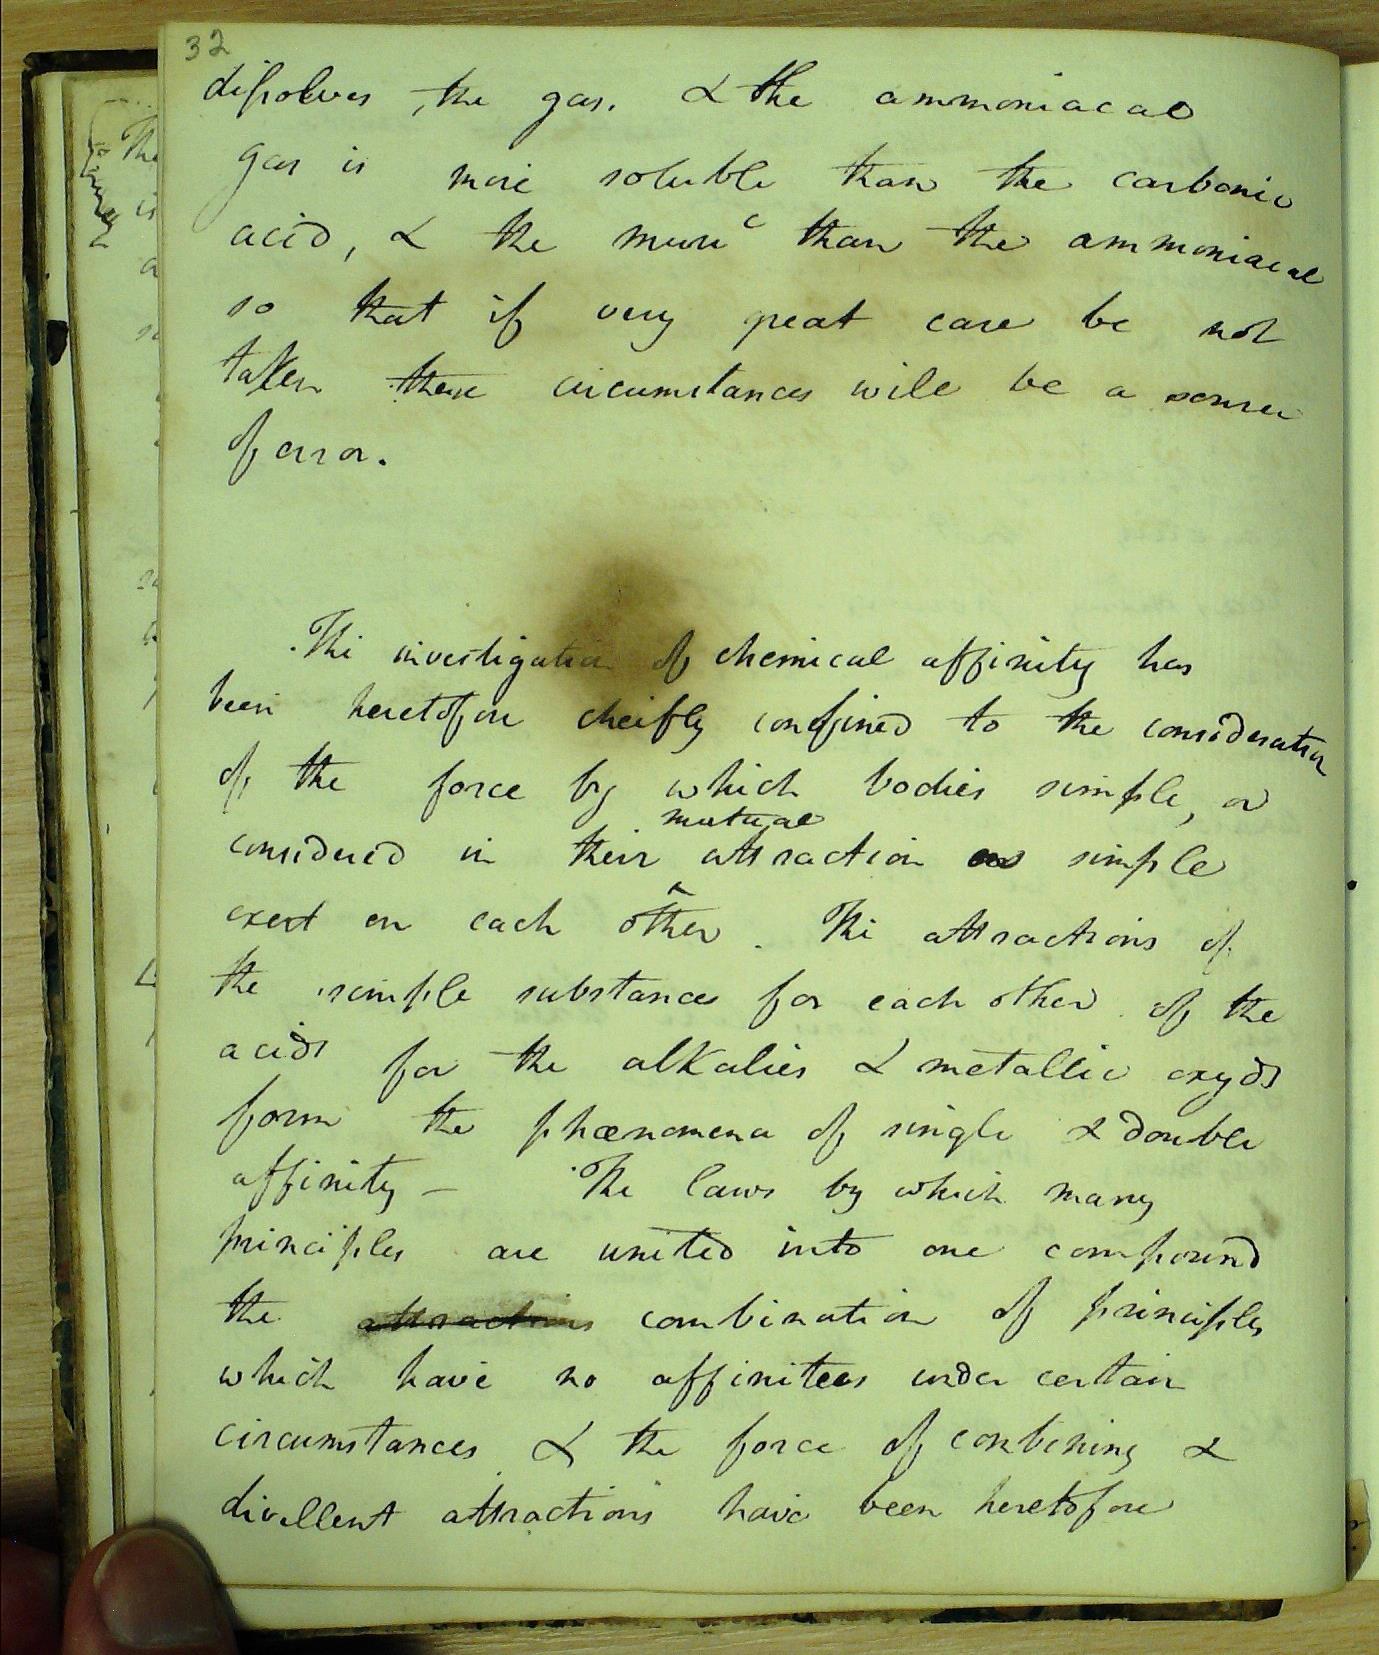 32
dissolves, the gas. & the ammoniacal
gas is more soluble than the carbonic
acid, & the mure^c than the ammoniacal
so that if very great care be not
taken these circumstances will be a source
of error.
The investigation of chemical affinity has
been heretofore cheifly confined to the consideration
of the force by which bodies simple, or
mutual
considered in their attraction as simple
exert on each other. The attractions of
the simple substances for each other of the
acids for the alkalies & metallic oxyds
form the phœnomena of single & double
affinity – The laws by which many
principles are united into one compound
the attractions combination of principles
which have no affinitees under certain
circumstances & the force of combining &
divellent attractions have been heretofore